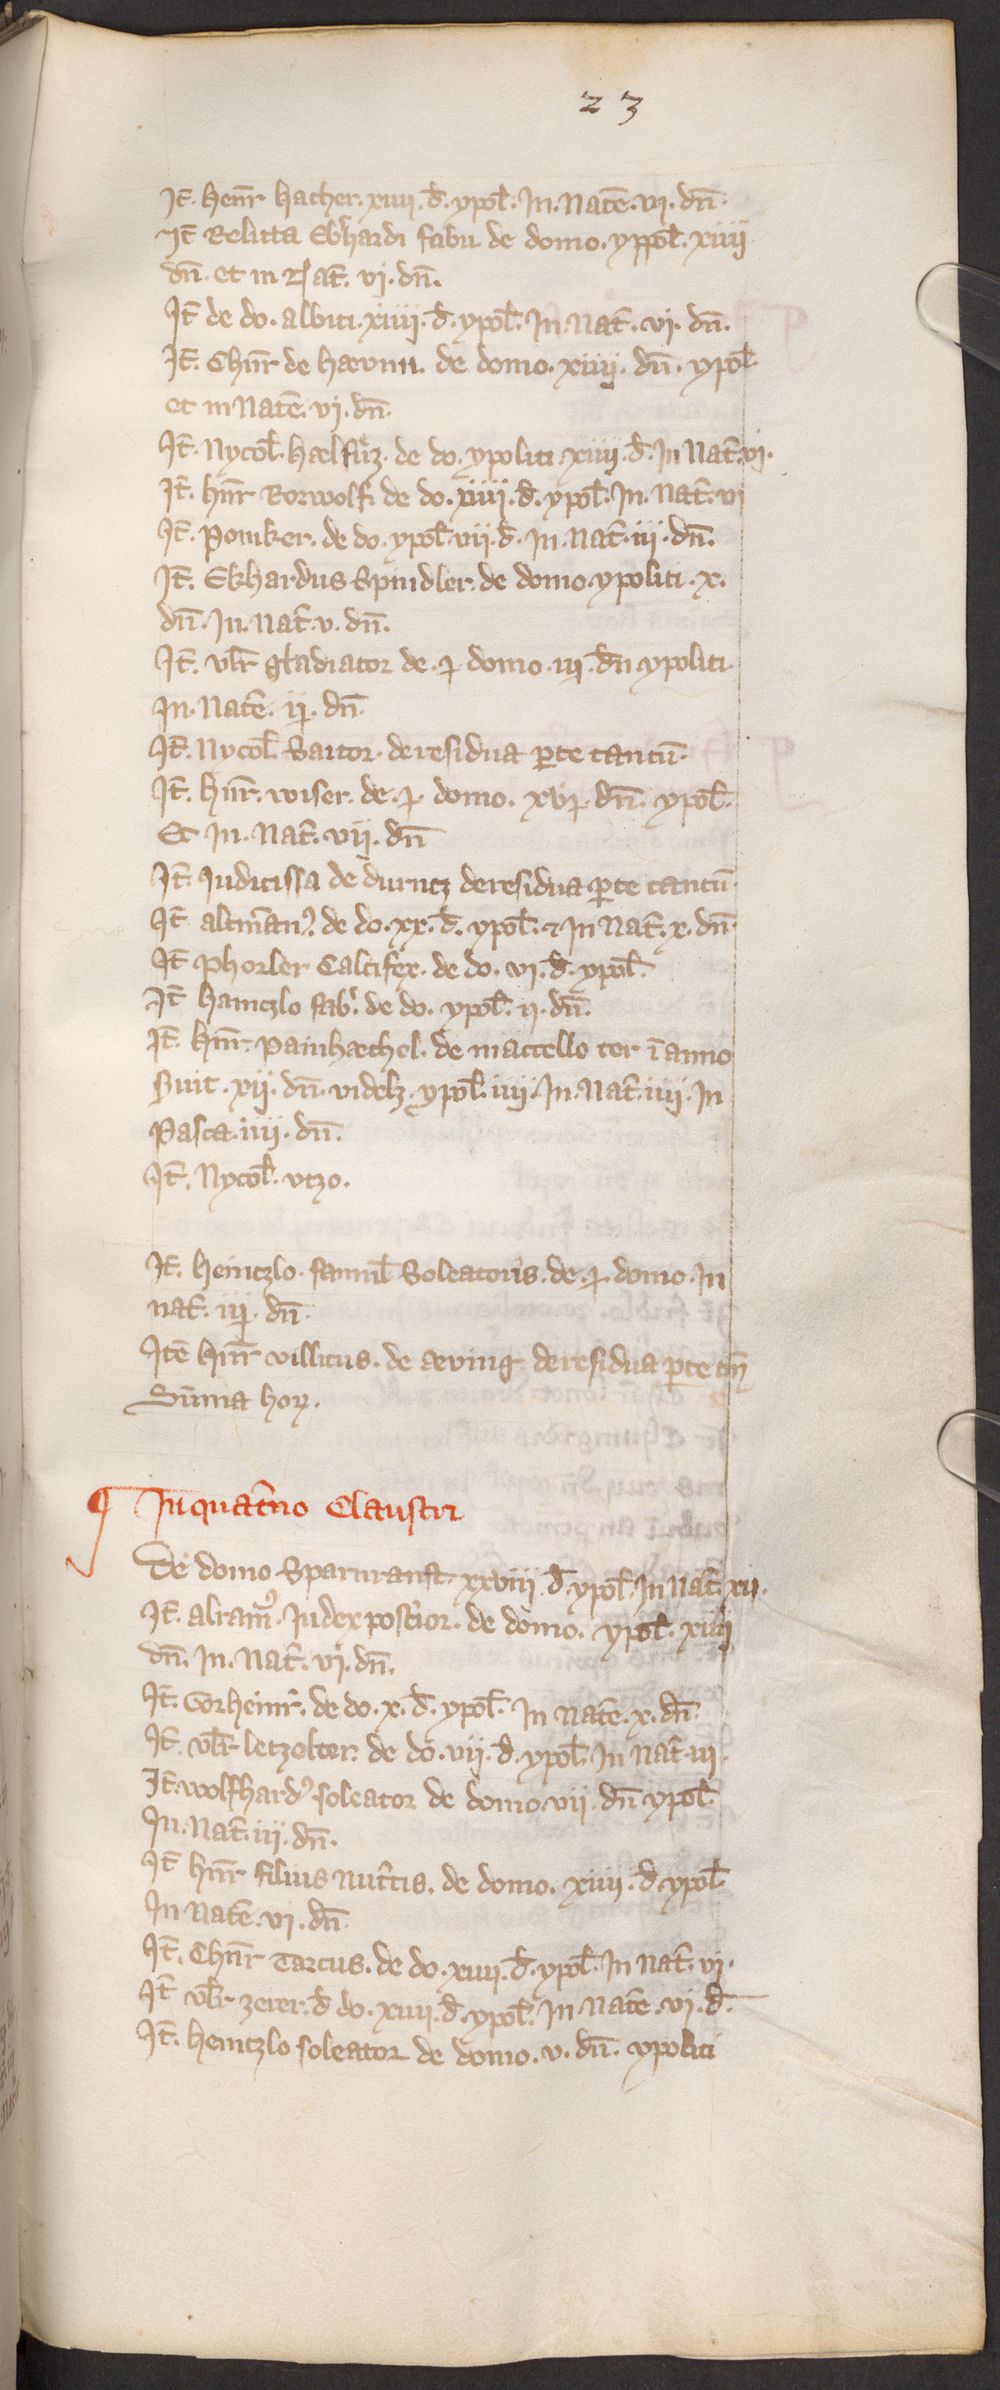 23
It̄. Heinr̄ hacher. xiiii. d̄. ypol̄. In. Natē. vi. dn̄.
It̄ Relicta Ebhardi fabri de domo. yppol̄. xiiij
dn̄. et in Nat̄. vi. dn̄.
It̄ de do. albici. xiiii. d̄. ypol̄. In. Nat̄. vi. dn̄.
It̄. Chnr̄ de hævnn. de domo. xiiij. dn̄. ypol̄
et in Natē. vi. dn̄.
It̄. Nycol̄. hælfuz. de do. ypoliti. xiiij. d̄. In Nat̄. vi.
It̄. hnr̄ Rorwolf. de do. xiiij. d̄. ypol̄. In. Nat̄. vi
It̄. Poniker. de do. ypol̄. vii. d̄. In. Nat̄. iii. dn̄.
It̄. Ekhardus Spindler. de domo. ypoliti. x.
dn̄. In. Nat̄. v. dn̄.
It̄. vlr̄ gladiator de. domo. dn̄ ypoliti.
In. Natē. dn̄.
It̄. Nycol̄. Sartor. de residua p̄te tantū.
It̄. hnr̄. wiser. de. domo. dn̄. ypol̄.
Et In. Nat̄. vii. dn̄
It̄. Iudicissa de durntz de residua p̄te tantū.
It̄ altman⁹. de do. xx. d̄. ypol̄. & In Nat̄. x. dn̄.
It̄ phorler Calcifex. de do. vi. d̄. ypol̄.
It̄ haintzlo fab. de do. ypol̄. ii. dn̄.
It̄. hnr̄. painhæchel. de maccello ter ī anno
suit. xii. dn̄. videlz. ypol̄. iiij. In. Nat̄. iiij. In
Pasca. iiij. dn̄.
It̄. Nycol̄. vtzo.
It̄. heintzlo. famul̄ Soleatoris. de. domo. In
nat̄. dn̄.
Itē hnr̄ villicus. de æving de residua p̄te tn̄
Sūma hoꝝ.
¶ In quat̄no Claustri
De domo Sparnranft. xxviii. d̄. ypol̄. In Nat̄. xii.
It̄. alram⁹. Iudex post̄ior. de domo. ypol̄. xiiij
dn̄. In. Nat̄. vi. dn̄.
It̄. Gorheimr̄. de do. x. d̄. ypol̄. In Natē. x. dn̄
It̄. vlr̄ letzelter. de do. vii. d̄. ypol̄. In Nat̄. iii.
It̄. wolfhard⁹. soleator de domo. vii. dn̄ ypol̄.
In. Nat̄. iij. dn̄.
It̄ hnr̄ filius nut̄cis. de domo. xiiii. d̄. ypol̄
In Natē. vi. dn̄.
It̄. Chnr̄ Tarcus. de do. xiiii. d̄. ypol̄. In Nat̄. vi.
It̄ vlr̄ zerer. d̄ do. xiiii. d̄. ypol̄. In Natē. vi. d̄.
It̄. heintzlo soleator de domo. v. dn̄. ypoliti